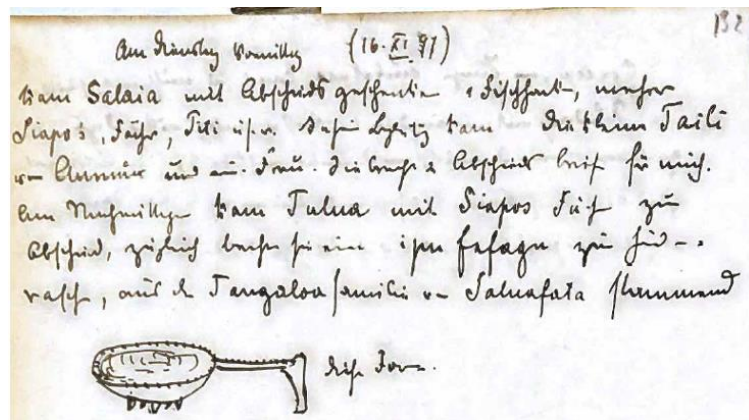 132
Am Dienstag Vormittag (16. XI. 97)
kam Salaia mit Abschiedsgeschenken, mehrer
Siapos, Fächer, Titi u.s.w. In ihrer kam die kleine Taili
von und eine Frau. Sie brachte Abschieds brief für mich.
Am Nachmittage kam Tulna mit Siapos Fächer zum
Abschied, zugleich brachte sie ein ipu fafaga zur
, aus der Tangaloa familie von Saluafata stammend
diese Form.